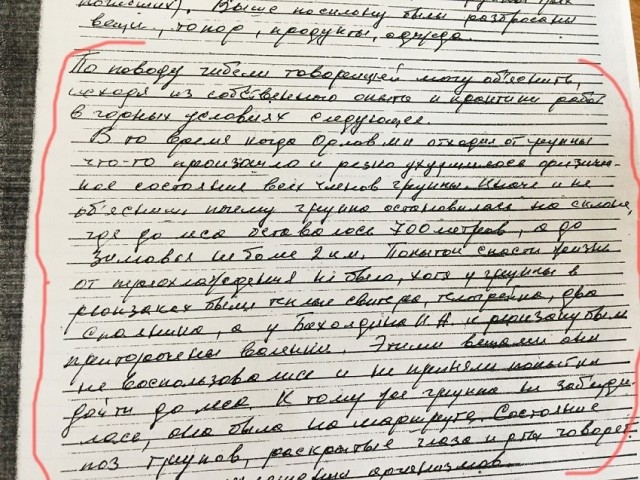 погибших). Выше посилоку были разбросаны
вещи, топор, продукты, одежда.
По поводу гибели товарищей могу объяснить,
исходя из собственного опыта и практики работ
в горных условиях следующее.
В то время когда Орлов М отходил от группы
что-то произошло и резко ухудшилось физичес-
кое состояние всех членов группы. Иначе и не
объяснить, почему группа остановилась на склоне,
где до леса оставалось 700 метров, а до
зимовья не боле 2 км. Попыток спасти жизни
от переохлаждения не было, хотя у группы в
рюкзаках были теплые свитера, два
спальника, а у И.А. к рюкзаку были
приторочены валенки. Этими вещами они
не воспользовались и не приняли попытки
дойти до леса. К тому же группа не заблуди-
лась, она была на маршруте. Состояние
поз трупов, раскрытые глаза и рты говорят
организмов.